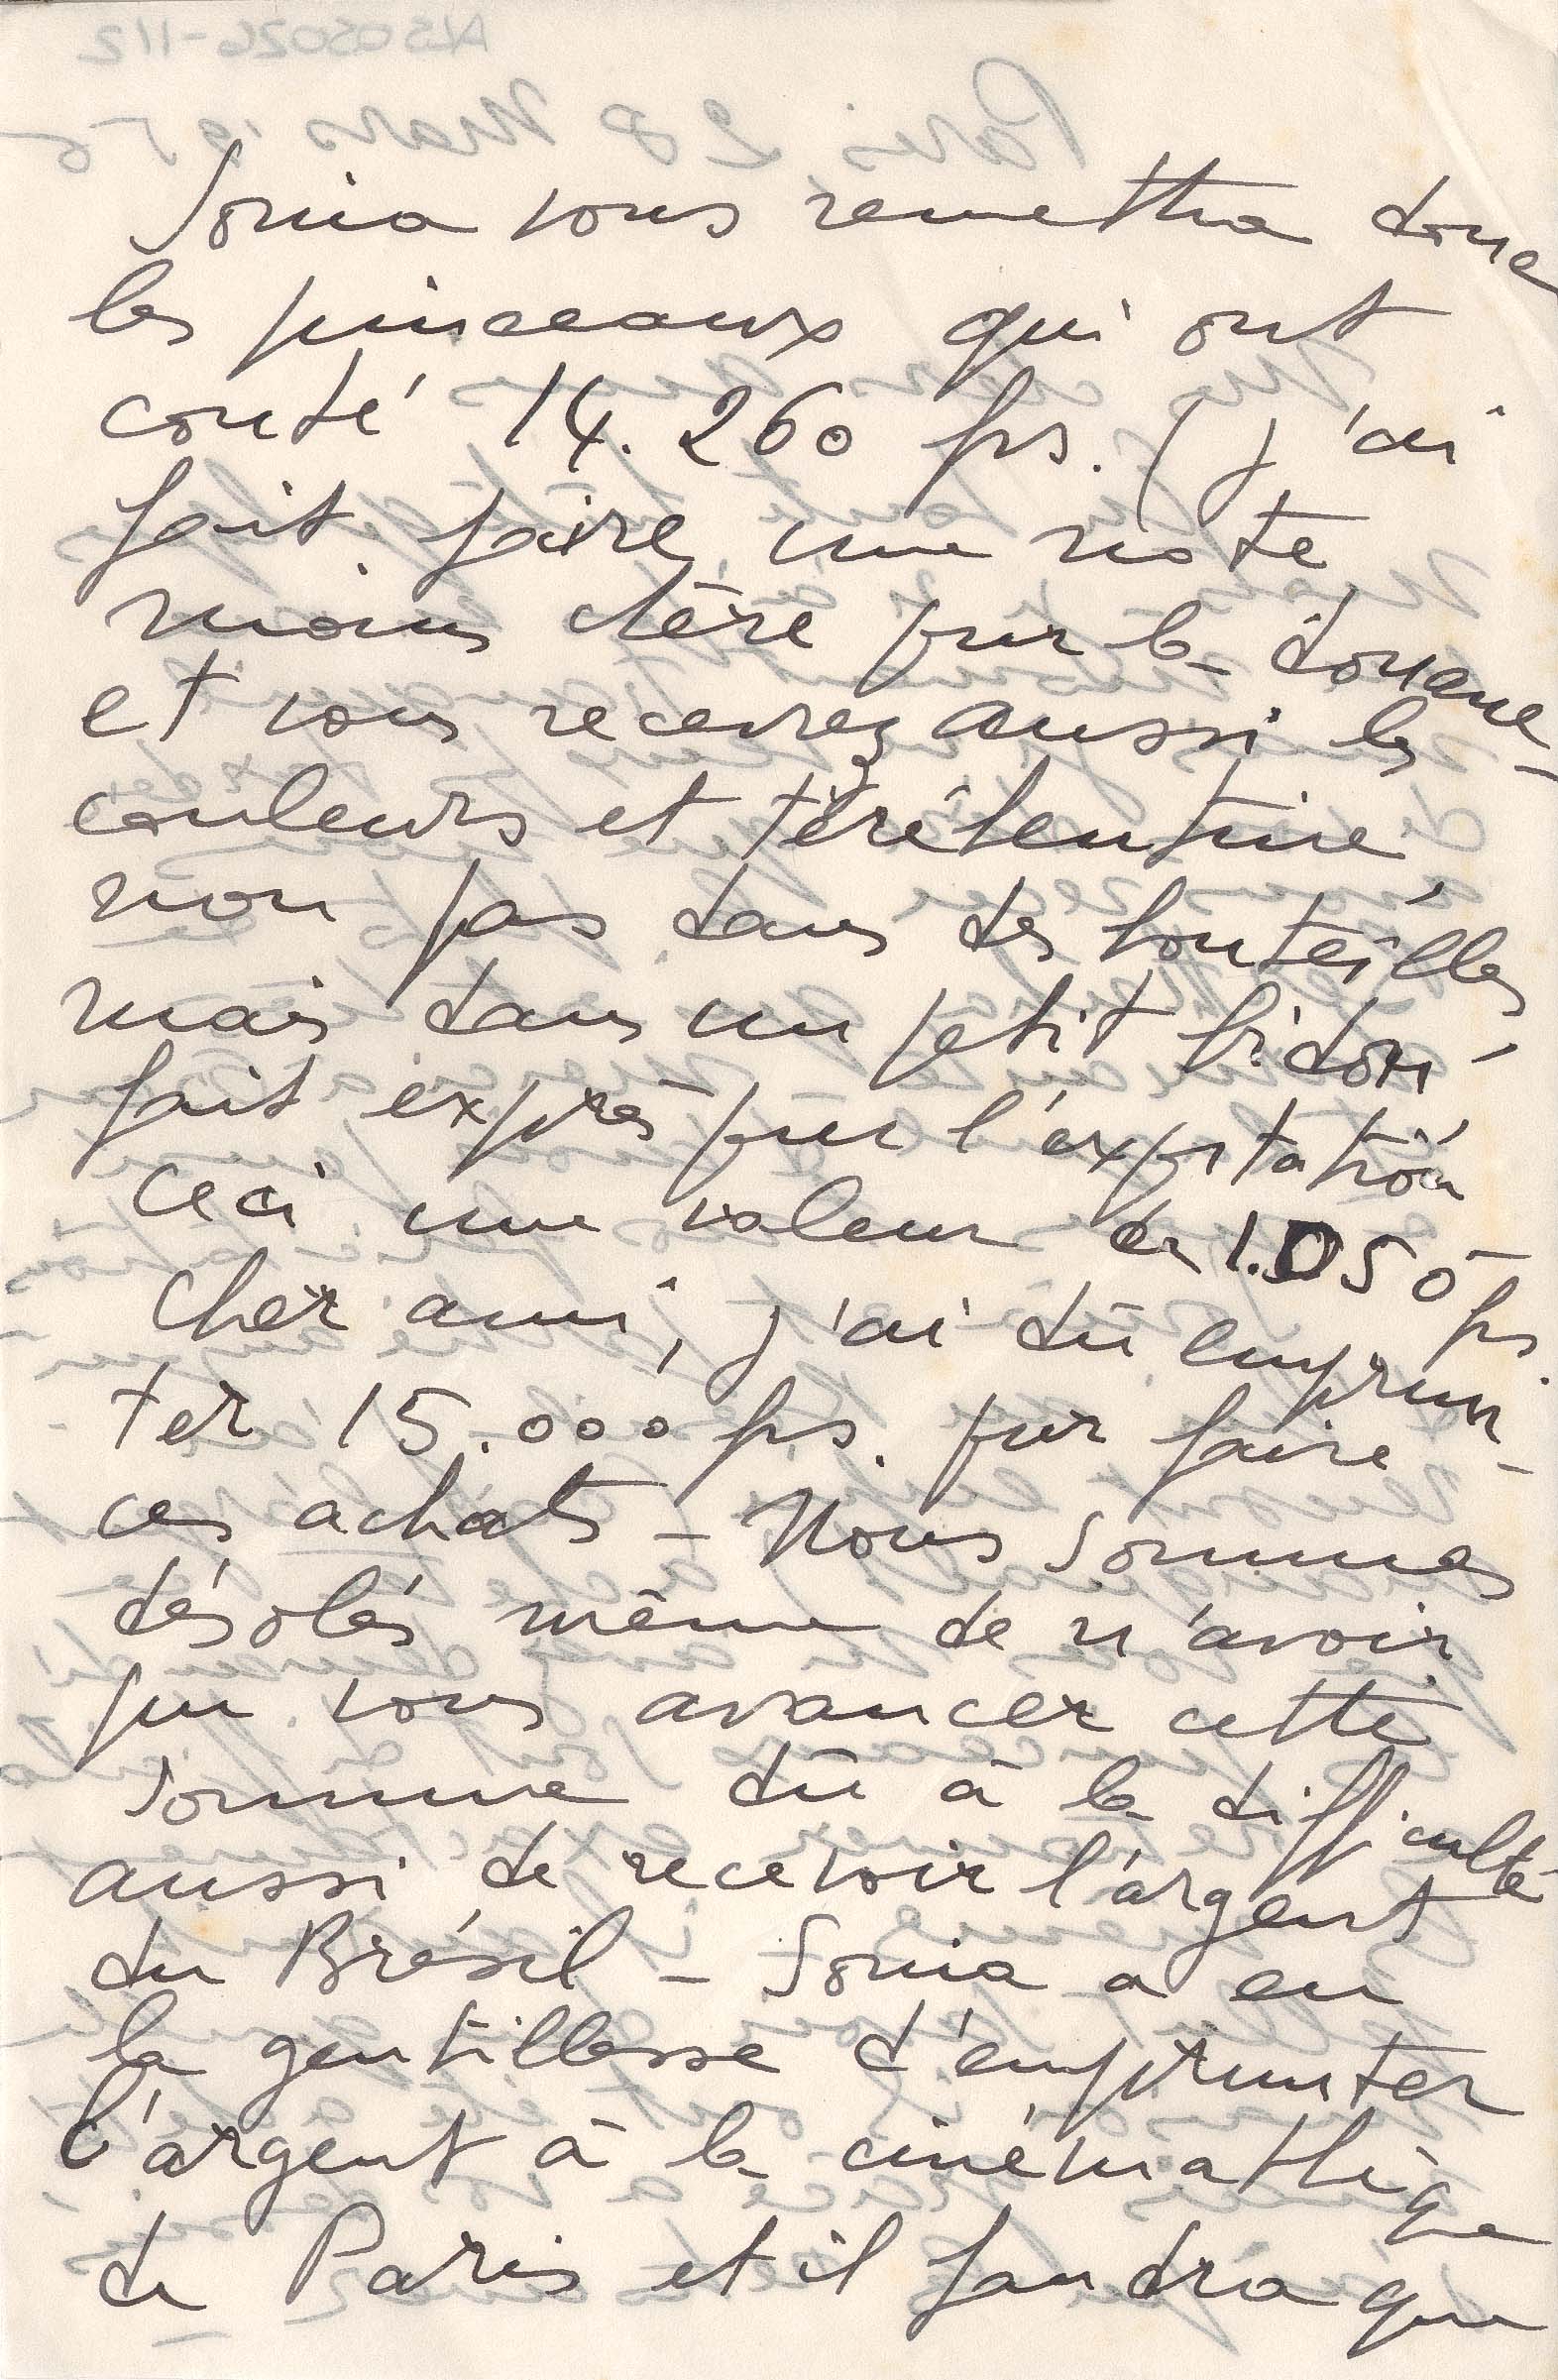 Sonia vous remettra donc
les pinceaux qui ont
couté 14.260 frs. (j'ai
fait faire une note
moins chère pour la douane
et vous recevrez aussi les -
couleurs et térébentine
non pas dans des bouteilles
mais dans un petit bidon
fait exprès pour l'exportation
ceci une valeur de 1.050 frs.
Cher ami, j'ai dû emprun-
ter 15.000 frs. pour faire
ces achats - Nous sommes
désolés même de n'avoir
pu vous avancer cette
somme dû à la difficulté
aussi de recevoir l'argent
du Brésil - Sonia a eu
la gentillesse d'emprunter
l'argent à la cinémathèque
de Paris et il faudra que